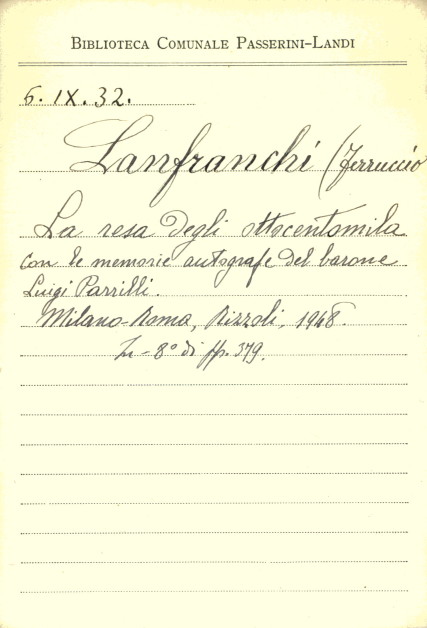 BIBLIOTECA COMUNALE PASSERINI-LANDI
6. IX. 32.
Lanfranchi (Ferruccio
La resa degli ottocentomila
con le memorie autografe del barone
Luigi Parrilli.
Milano-Roma, Rizzoli, 1948.
In-8° di pp. 379.